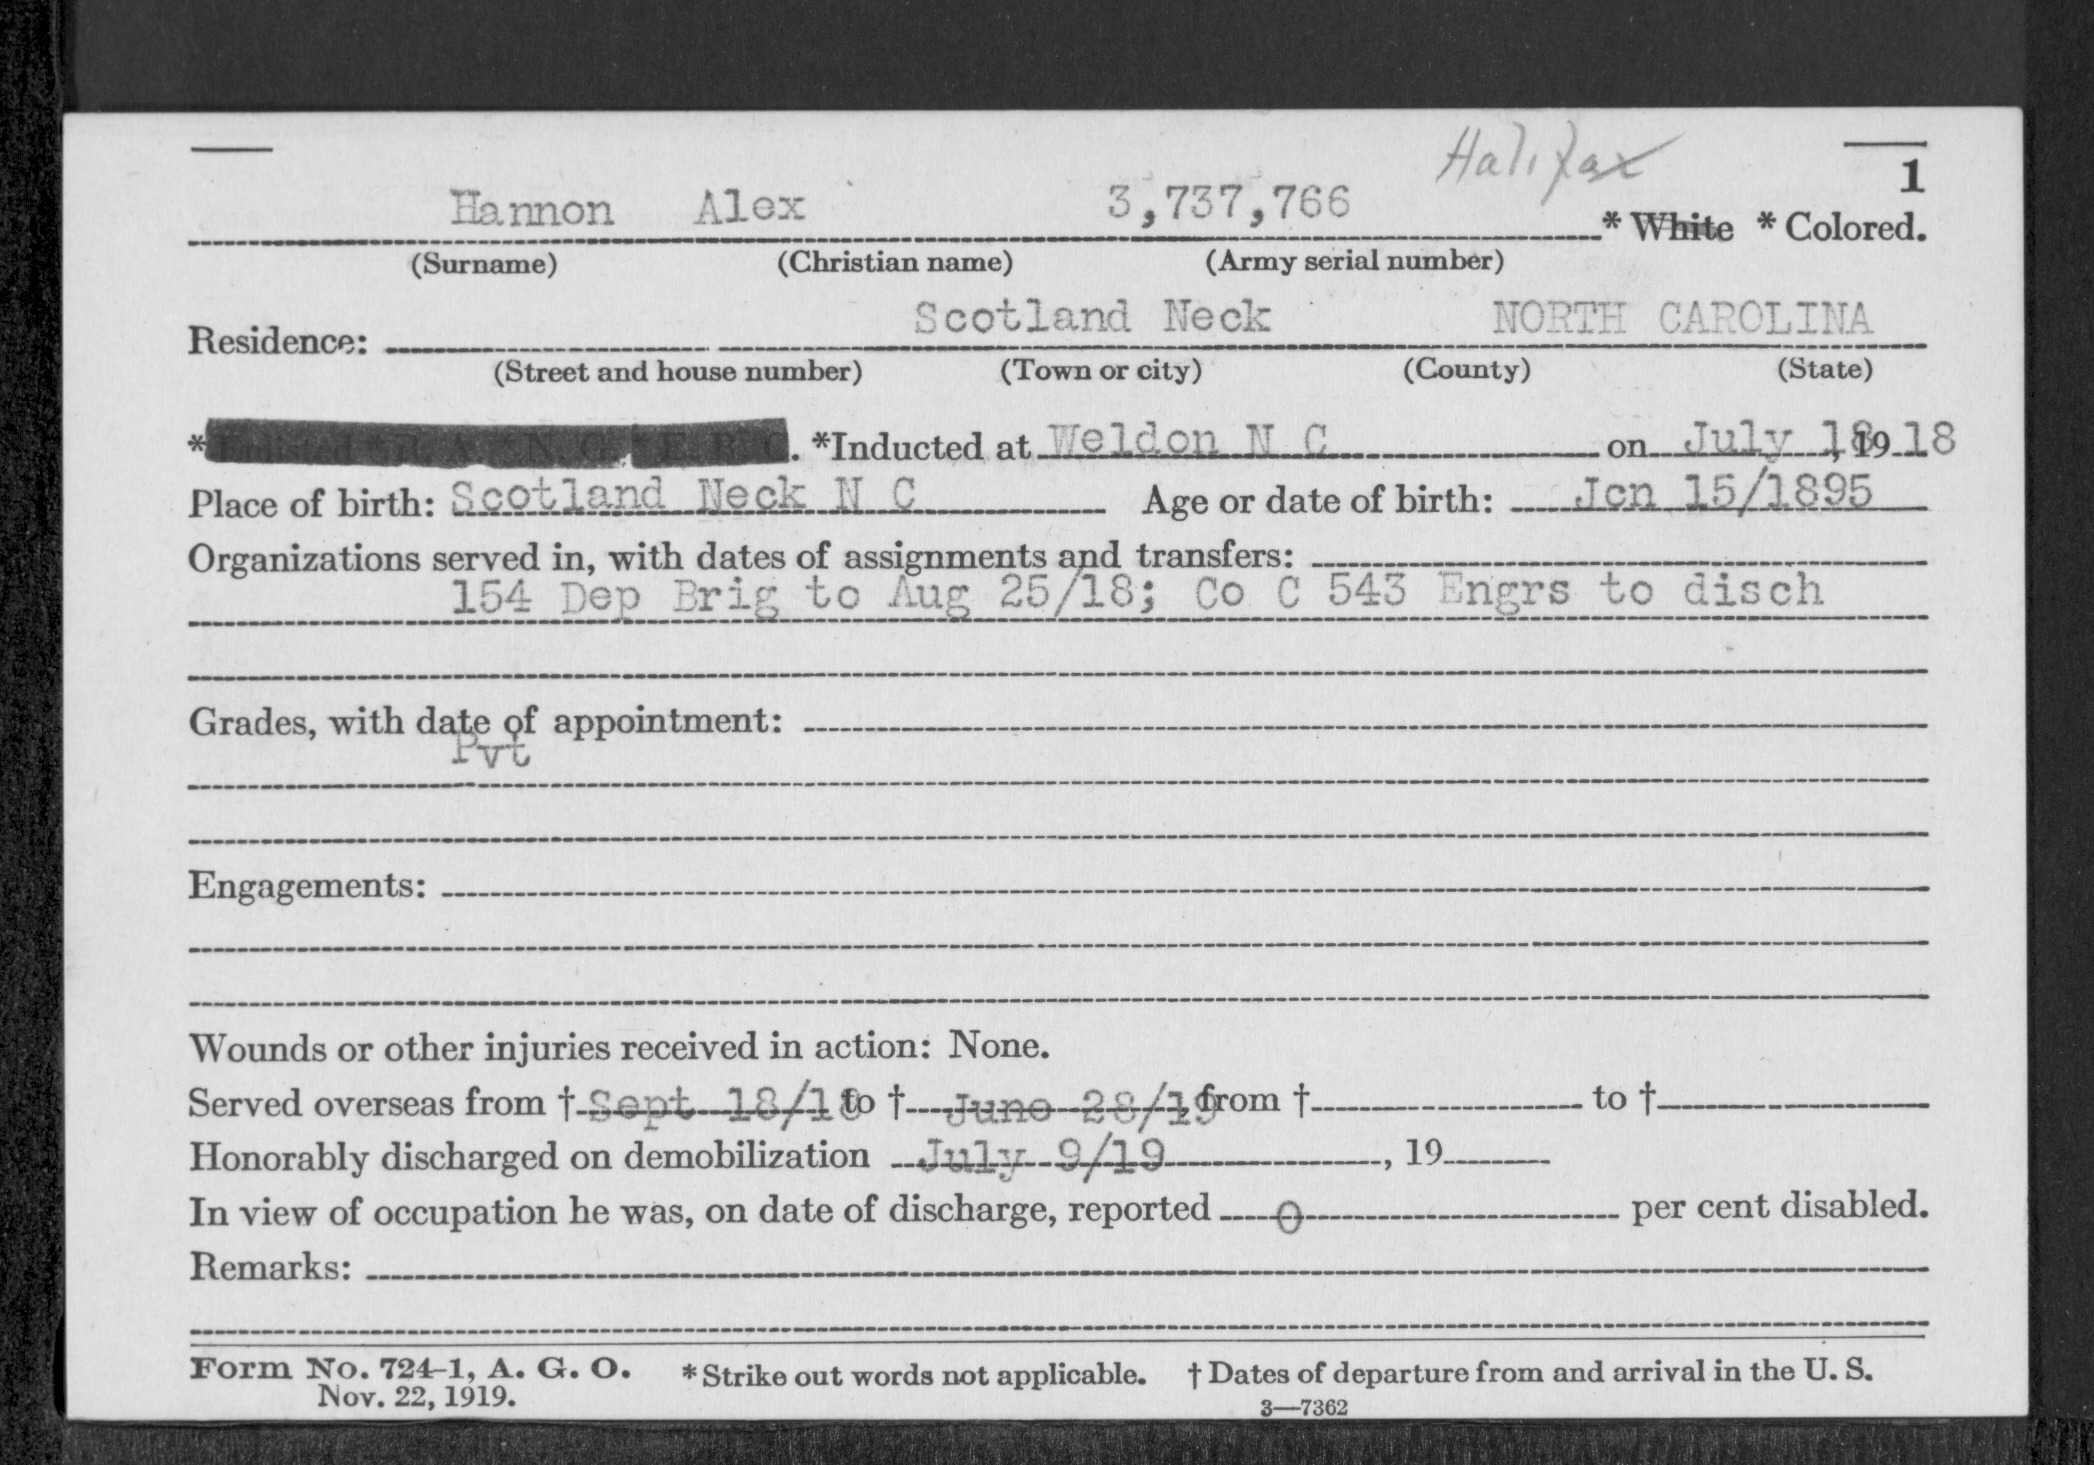 Halifax
1
Hannon Alex 3,737,766 * White * Colored.
(Surname) (Christian name) (Army serial number)
Scotland Neck NORTH CAROLINA
Residence:
(Street and house number) (Town or city) (County) (State)
*Enlisted * R. A. * N. G. * E. R. C. *Inducted at Weldon N C on July 18, 1918
Place of birth: Scotland Neck N C Age or date of birth: Jcn 15/1895
Organizations served in, with dates of assignments and transfers:
154 Dep Brig to Aug 25/18; Co C 543 Engrs to disch
Grades, with date of appointment:
Pvt
Engagements:
Wounds or other injuries received in action: None.
Served overseas from † Sept 18/18 to † June 28/19, from † to †
Honorably discharged on demobilization July 9/19, 19
In view of occupation he was, on date of discharge, reported 0 per cent disabled.
Remarks:
Form No. 724-1, A. G. O. *Strike out words not applicable. † Dates of departure from and arrival in the U. S.
Nov. 22, 1919. 3—7362